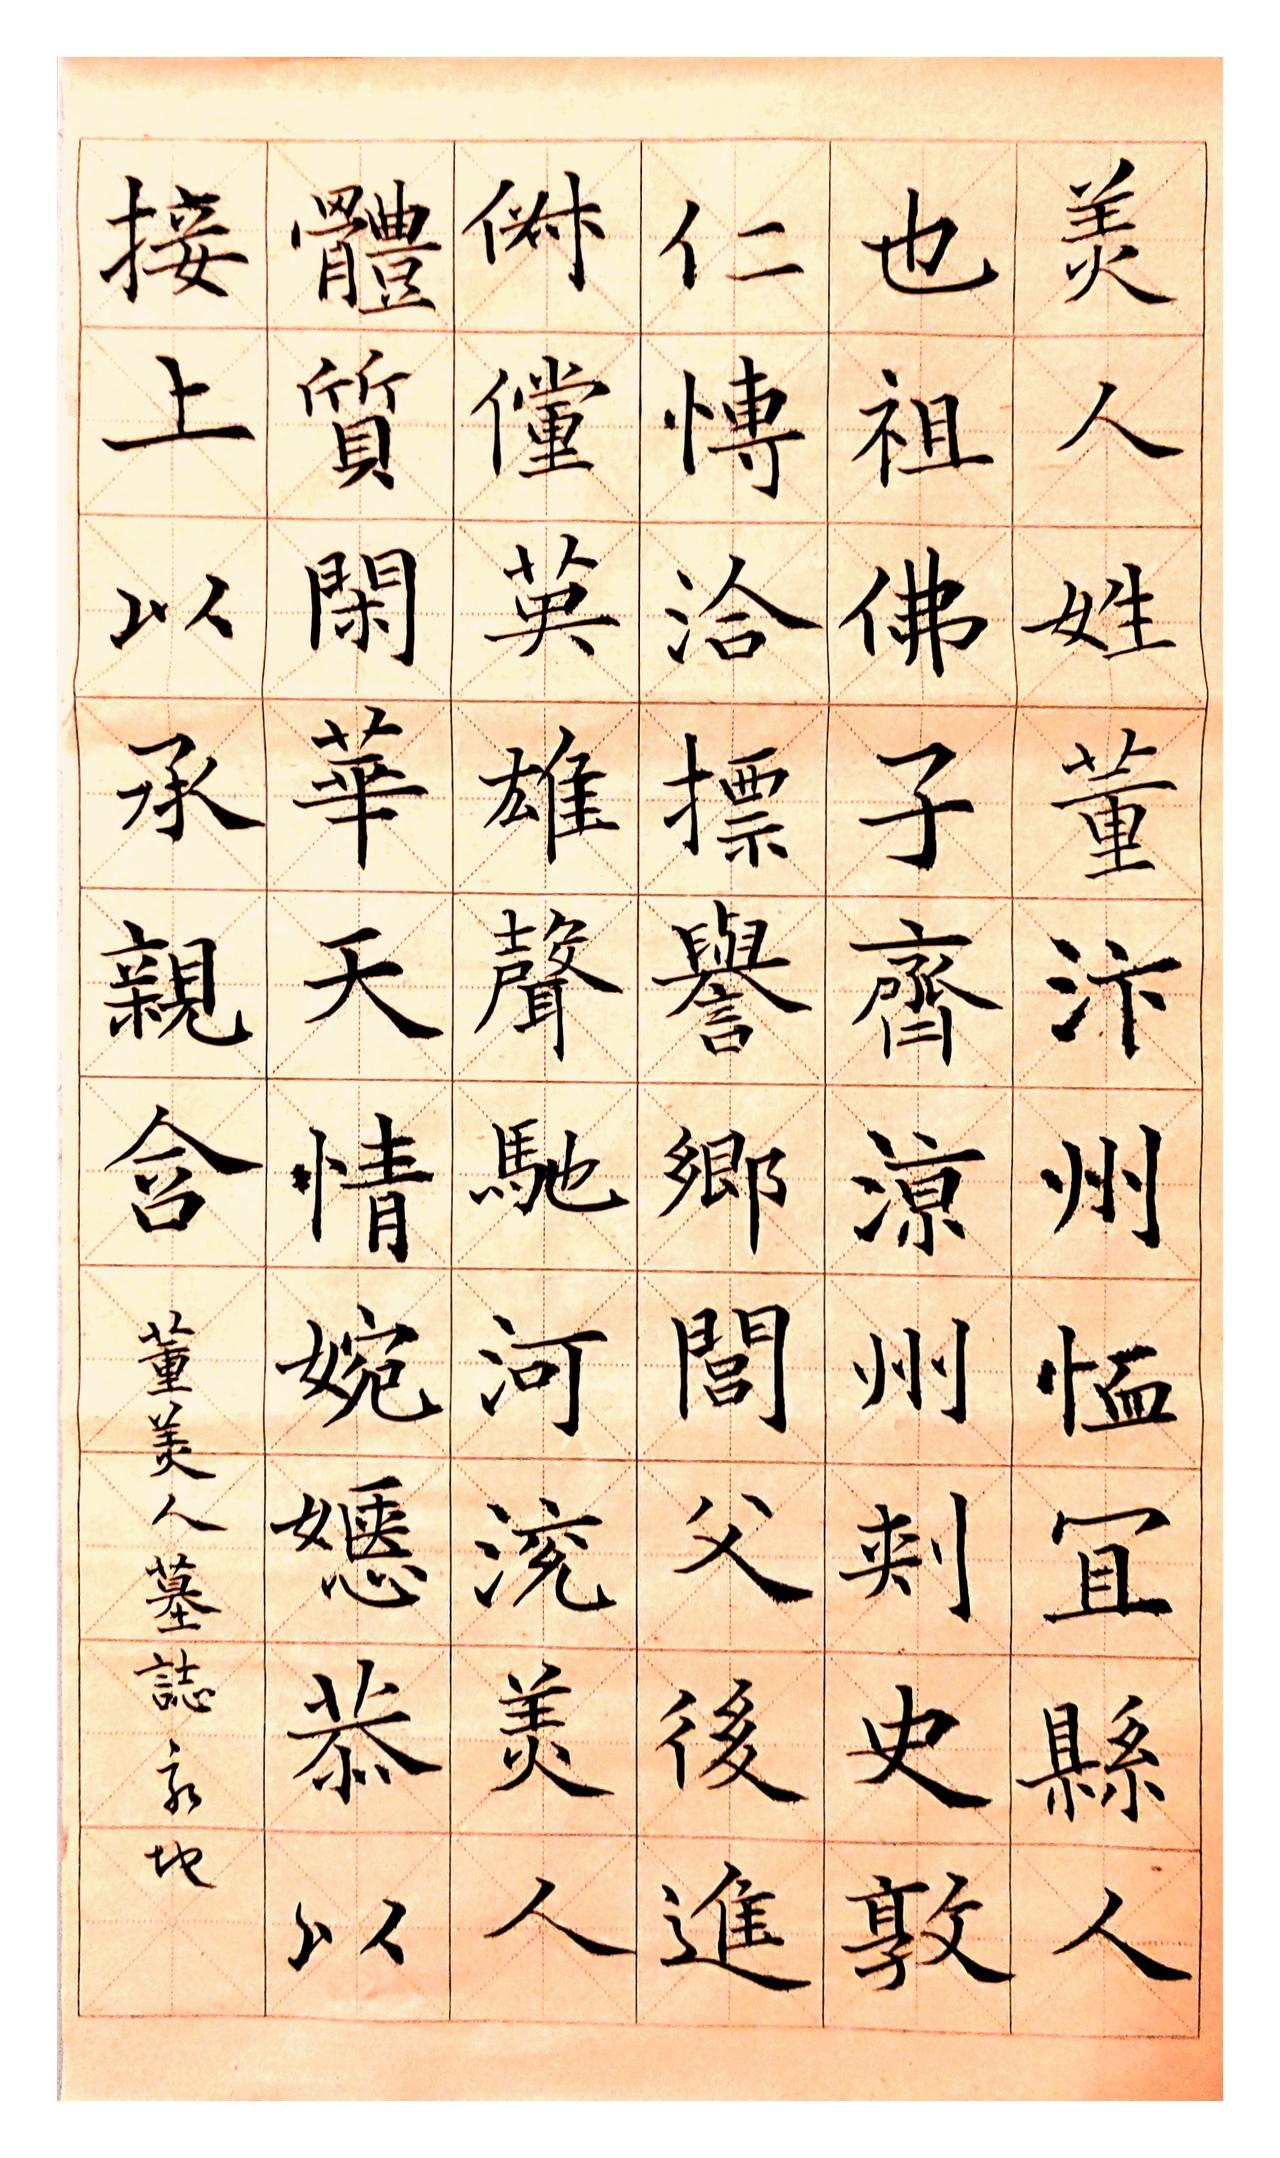 美人姓董汴州恤宜縣人
也祖佛子齊涼州刺史敦
仁博洽摽譽鄉閭父後進
俶儻英雄聲馳河流美人
體質閑華天情婉嫕恭以
接上以承親含
董美人墓誌 永地